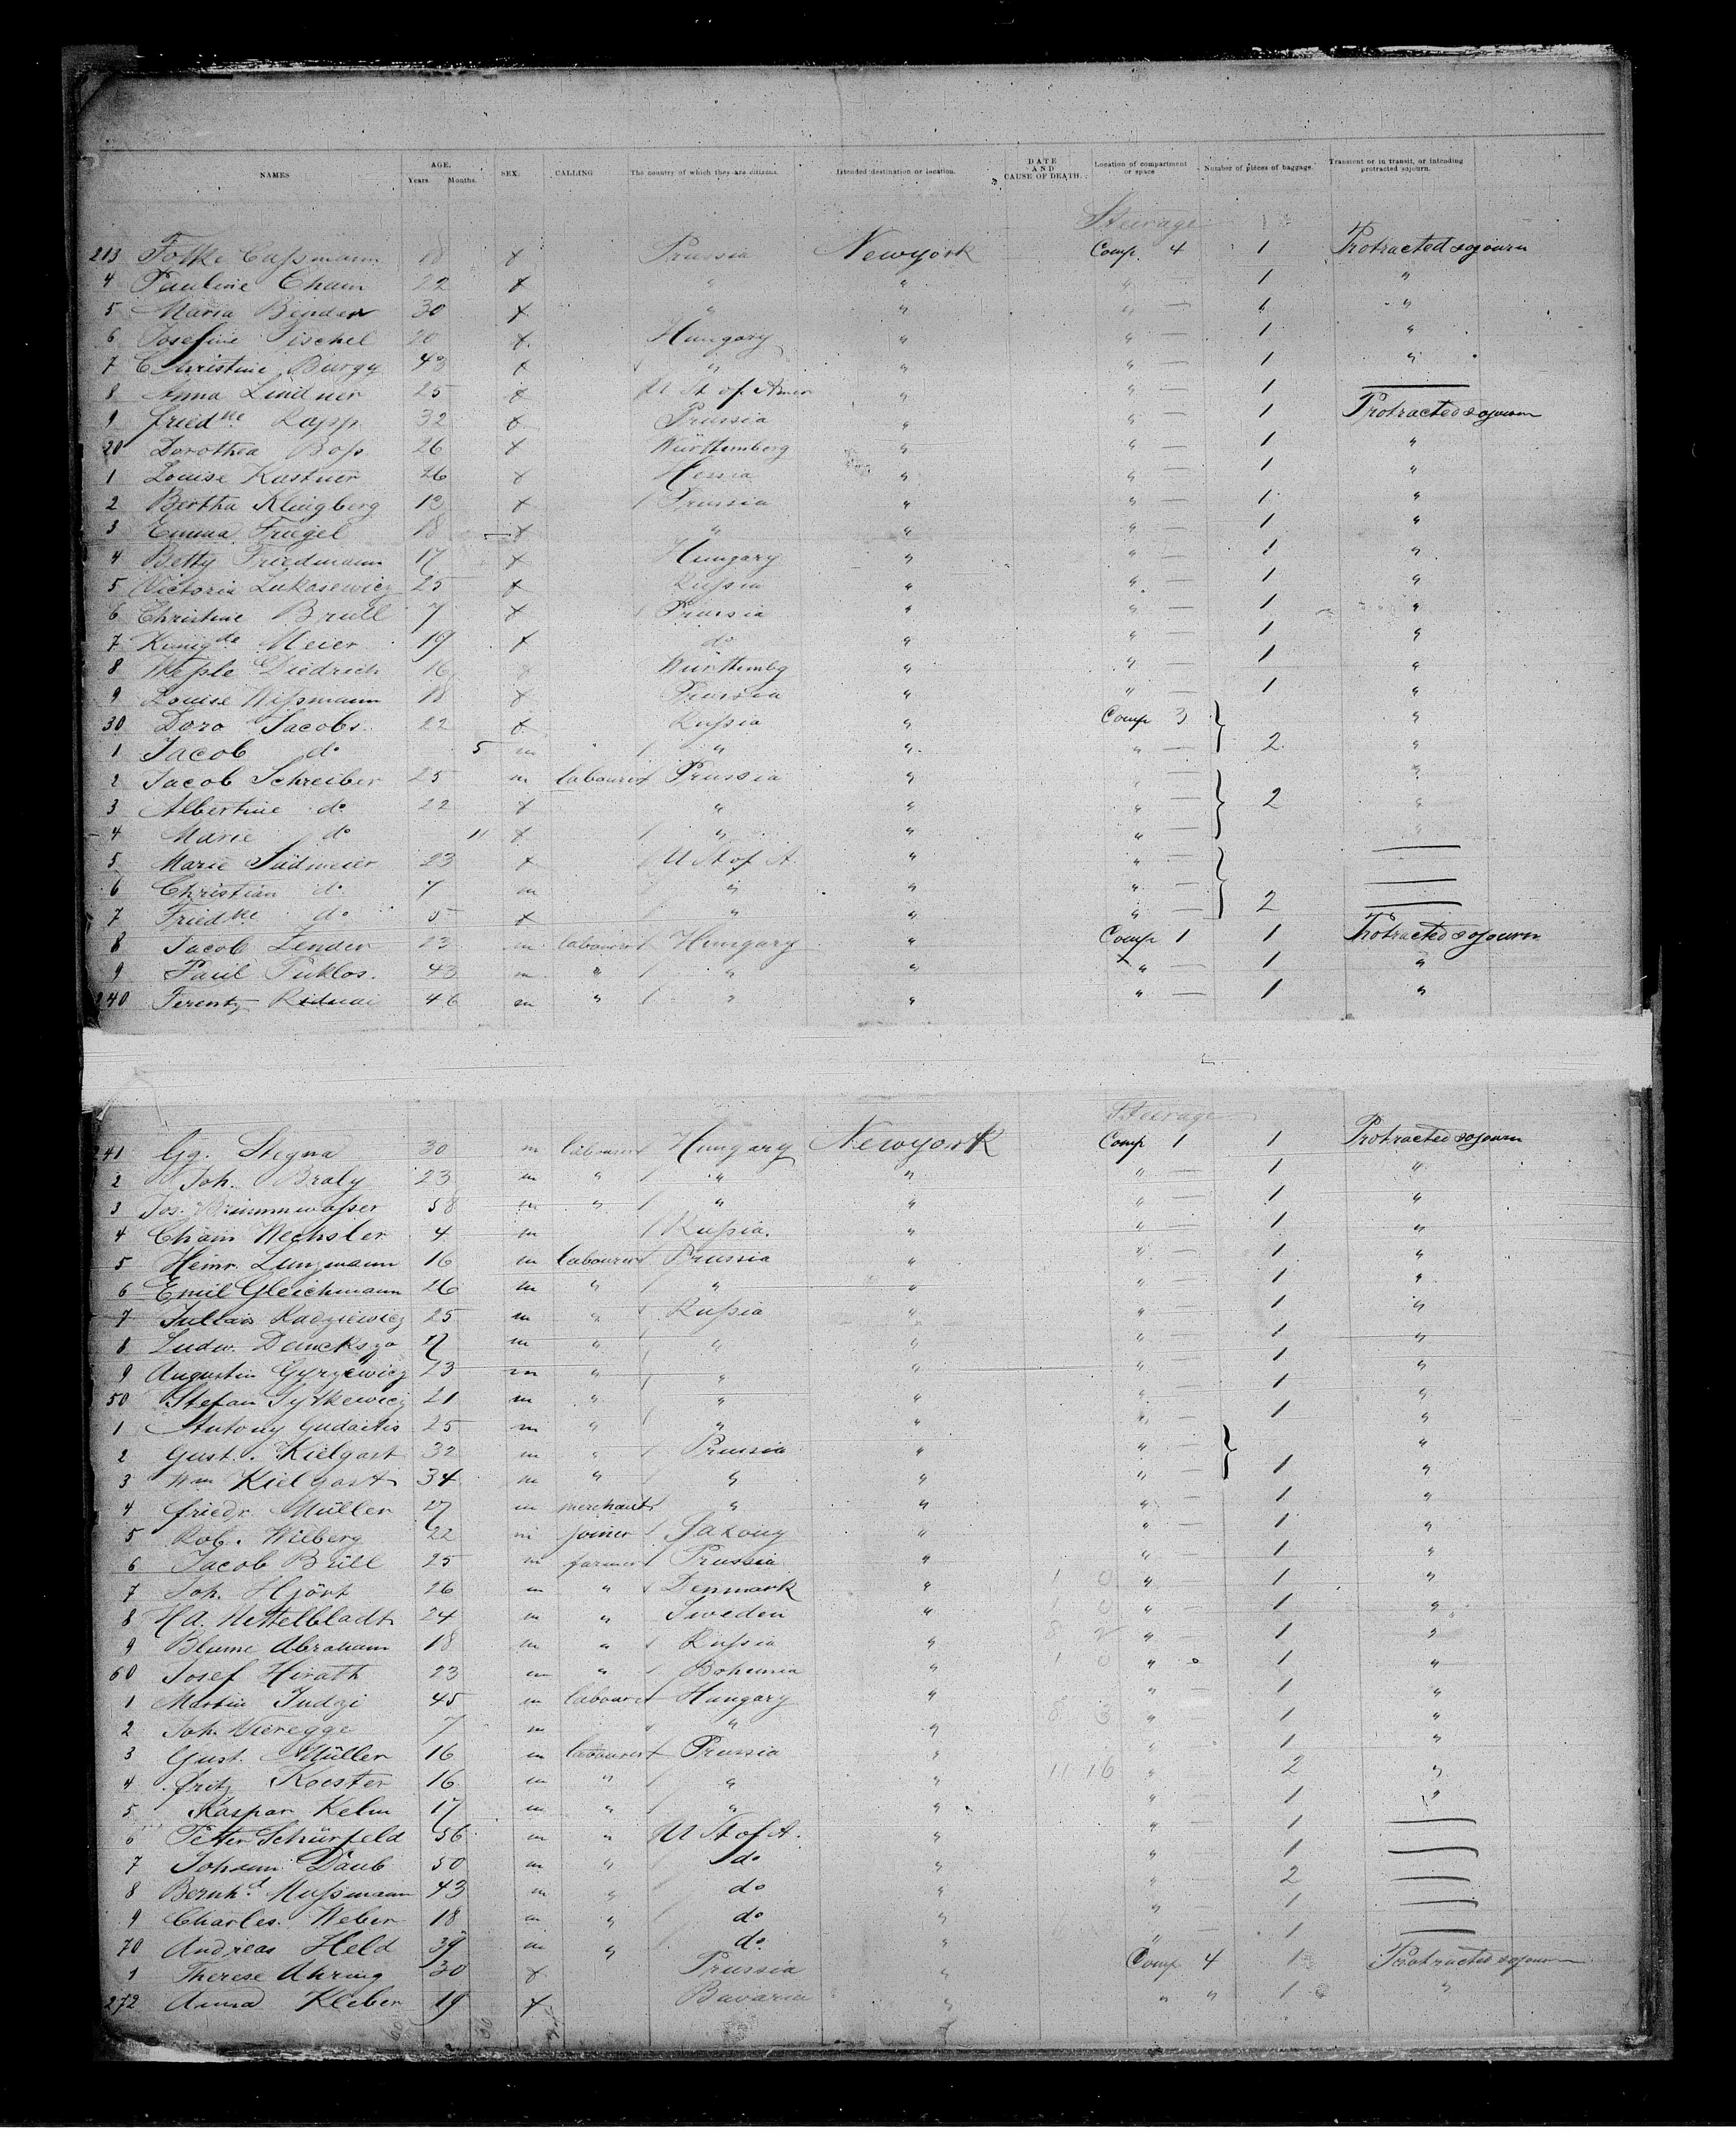 NAMES AGE. Years. Months. SEX. CALLING The country of which they are citizens. Intended destination or location. DATE AND CAUSE OF DEATH. Location of compartment or space Number of pieces of baggage. Transient or in transit, or intending protracted sojourn.
Steerage
213 Folke Caßmann 18 f Prussia Newyork Comp. 4 1 Protracted sojourn
4 Pauline Cham 22 f " " " 1 "
5 Maria Bender 30 f " " " — 1 "
6 Josefine Tischel 20 f Hungary " " — 1 "
7 Christine Burgy 43 f " " " — 1 "
8 Anna Lindner 25 f U St of Amer " " — 1 —
9 Friedke Rapp 32 f Prussia " " — 1 Protracted sojourn
20 Dorothea Boß 26 f Württemberg " " — 1 "
1 Louise Kastner 26 f Hessia " " — 1 "
2 Bertha Klingberg 13 f Prussia " " — 1 "
3 Emma Friegel 18 f " " " — 1 "
4 Betty Friedmann 17 f Hungary " " — 1 "
5 Victoria Lukasewicz 25 f Rußia " " — 1 "
6 Christine Brüll 7 f Prussia " " — 1 "
7 Kunigde Meier 19 f do " " — 1 "
8 Weßle Diedrich 16 f Württembg " " 1 "
9 Louise Wißmann 18 f Prussia " " — 1 "
30 Dora Jacobs 22 f Rußia " Comp 3 "
1 Jacob do 5 m " " " — 2 "
2 Jacob Schreiber 25 m labourer Prussia " " — "
3 Albertine do 22 f " " " — 2 "
4 Marie do 11 f " " " — "
5 Marie Südmeier 23 f U St of A. " " — —
6 Christian do 7 m " " " — —
7 Friedke do 5 f " " " — 2 —
8 Jacob Zender 23 m labourer Hungary " Comp 1 1 Protracted sojourn
9 Paul Puklos. 43 m " " " " — 1 "
240 Ferentz 46 m " " " " — 1 "
Steerage
241 Gg. Stegna 30 m labourer Hungary Newyork Comp 1 1 Protracted sojourn
2 Joh. Braly 23 m " " " " — 1 "
3 Jos. Brunnwaßer 58 m " " " " — 1 "
4 Chaim Wechsler 4 m Rußia. " " — 1 "
5 Heinr. Lungmann 16 m labourer Prussia " " — 1 "
6 Emil Gleichmann 26 m " " " " — 1 "
7 Julian Radziewicz 25 m " Rußia " " 1 "
8 Ludw. 27 m " " " " — 1 "
9 Augustin Gyrzewicz 23 m " " " " — 1 "
50 Stefan Sytkewicz 21 m " " " " 1 "
1 Antony Gudaitis 25 m " " " " — 1 "
2 Gust. Kielgast 32 m " Prussia " " — "
3 Wm Kielgast 34 m " " " " — 1 "
4 Friedr. Müller 27 m merchant " " " — 1 "
5 Rob. Wilberg 22 m joiner Saxony " " — 1 "
6 Jacob Brüll 25 m farmer Prussia " " — 1 "
7 Joh. Hjört 26 m " Denmark " 1 0 " — 1 "
8 H.A. Nettelbladt 24 m " Sweden " 1 0 " — 1 "
9 Blume Abraham 18 m " Rußia " 8 2 " — 1 "
60 Josef Hirath 23 m " Bohemia " 1 0 " 1 "
1 Martin Judzi 45 m labourer Hungary " " — 1 "
2 Joh. Vieregge 7 m " " 8 3 " 1 "
3 Gust. Müller 16 m labourer Prussia " " — 1 "
4 Fritz Koester 16 m " " " 11 16 " 2 "
5 Kaspar Kelm 17 m " " " " — 1 "
6 Peter Schürfeld 56 m " U St of A. " " — 1 —
7 Johann Daub 50 m " do " " 1 —
8 Bernhd Mußmann 43 m " do " " — 2 —
9 Charles Weber 18 m " do " " — 1 —
70 Andreas Held 39 m " do. " " — 1 —
1 Therese Ahring 30 f Prussia " Comp 4 1 Protracted sojourn
272 Anna Kleber 19 f Bavaria " " " 1 "